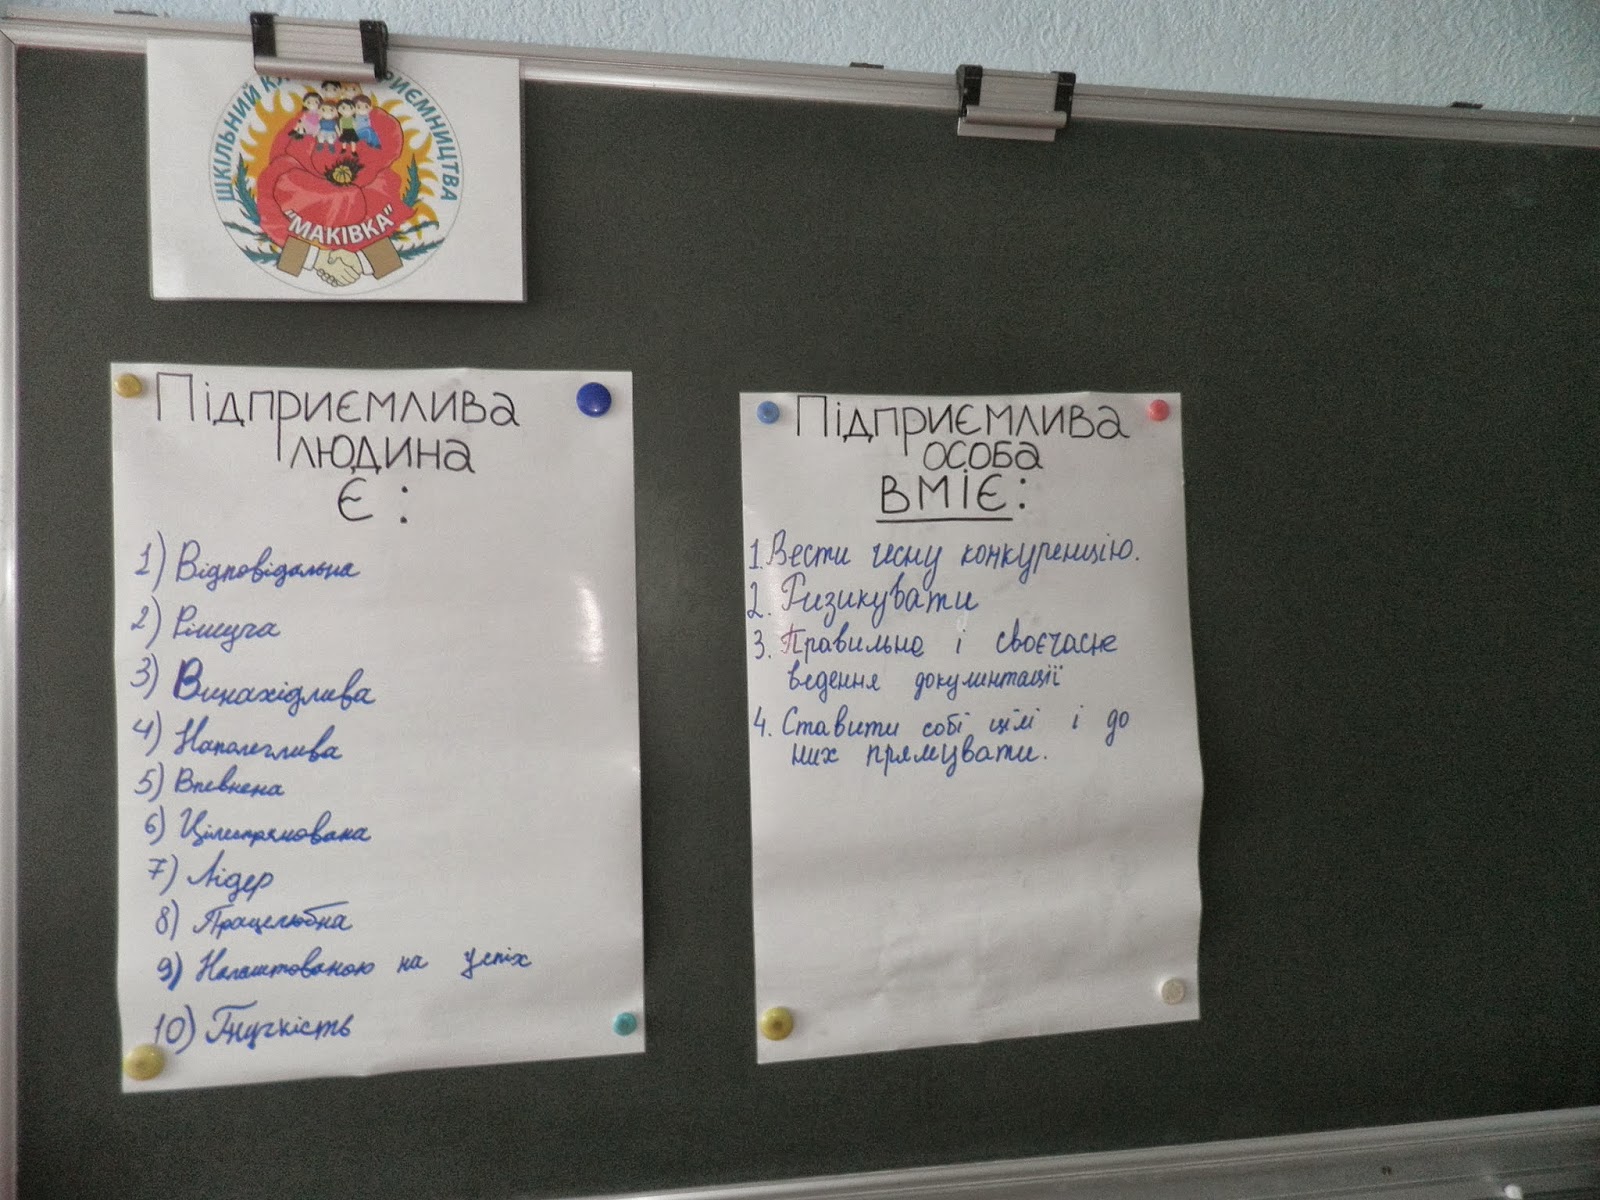 ШКІЛЬНИЙ
"МАКІВКА"
Підприємлива
людина
є :
1) Відповідальна
2) Рішуча
3) Винахідлива
4) Наполеглива
5) Впевнена
6) Цілеспрямована
7) Лідер
8) Працелюбна
9) Налаштованою на успіх
10) Гнучкість
Підприємлива
особа
вміє:
1. Вести чесну конкуренцію.
2. Ризикувати
3. Правильне і своєчасне
ведення документації
4. Ставити собі цілі і до
них прямувати.